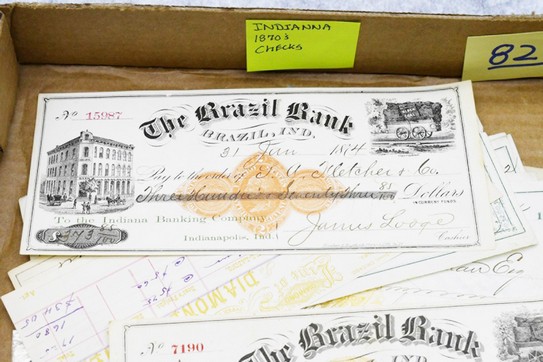 INDIANNA
1870's
CHECKS
82
No 15987
The Brazil Bank
BRAZIL, IND.
31 Jan 1874
Pay to the order of S. A. Fletcher & Co.
Three Hundred & Seventy three 81/100 Dollars
IN CURRENT FUNDS
To the Indiana Banking Company
Indianapolis, Ind.
$373 81/100
Cashier
DIAMON
No 7190
The Brazil Bank
IND